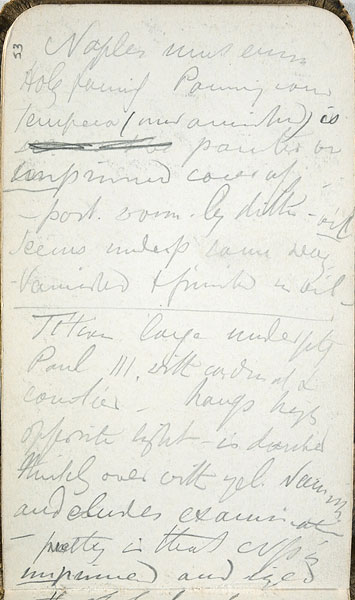 53
Naples museum
Holy family Parmigiano
Tempera (unvarnished) is
painted on
unprimed canvas of
- port. worn. by ditto - oil
seems underp same way
- Varnished & finished in oil -
Titian large underptg
Paul III. with cardinal &
courtier - hangs high
opposite light - is daubed
thickly over with yel. varnish
and eludes examination
- pretty is that cvs is
unprimed and